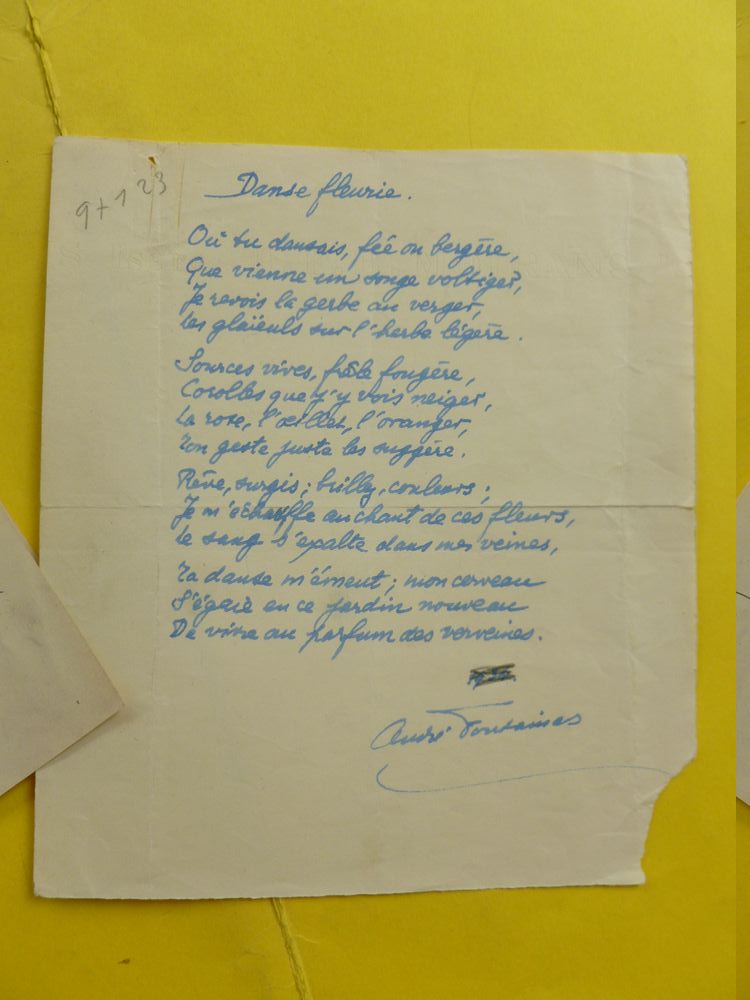 9+1 23
Danse fleurie.
Où tu dansais, fée ou bergère,
Que vienne un songe voltiger,
Je revois la gerbe au verger,
Les glaïeuls sur l'herbe légère.
Sources vives, frêle fougère,
Corolles que j'y vois neiger,
La rose, l'œillet, l'oranger,
Ton geste juste les suggère.
Rêve, surgis ; brillez, couleurs ;
Je m'échauffe au chant de ces fleurs,
Le sang s'exalte dans mes veines,
Ta danse m'émeut ; mon cerveau
S'égaie en ce jardin nouveau
De vivre au parfum des verveines.
André Fontainas